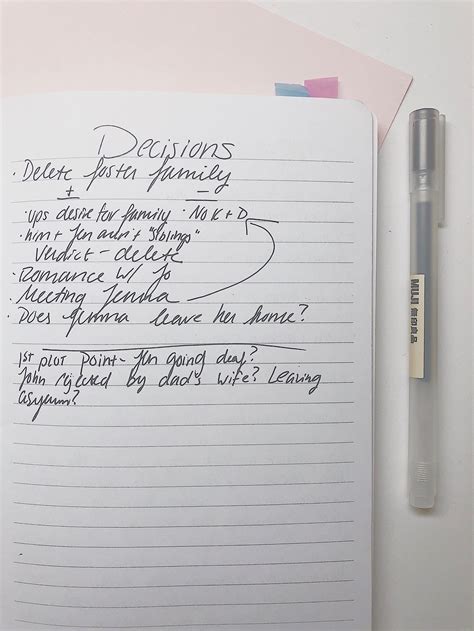 Decisions
· Delete foster family
+ −
· ups desire for family · No K + D
· him + Jen aunt + "siblings"
Verdict - delete
· Romance w/ Jo
· Meeting Jemma
· Does Jemma leave her home?
1st plot point - Jen going deaf?
John rejected by dad's wife? Leaving
asylum?
MUJI 無印良品